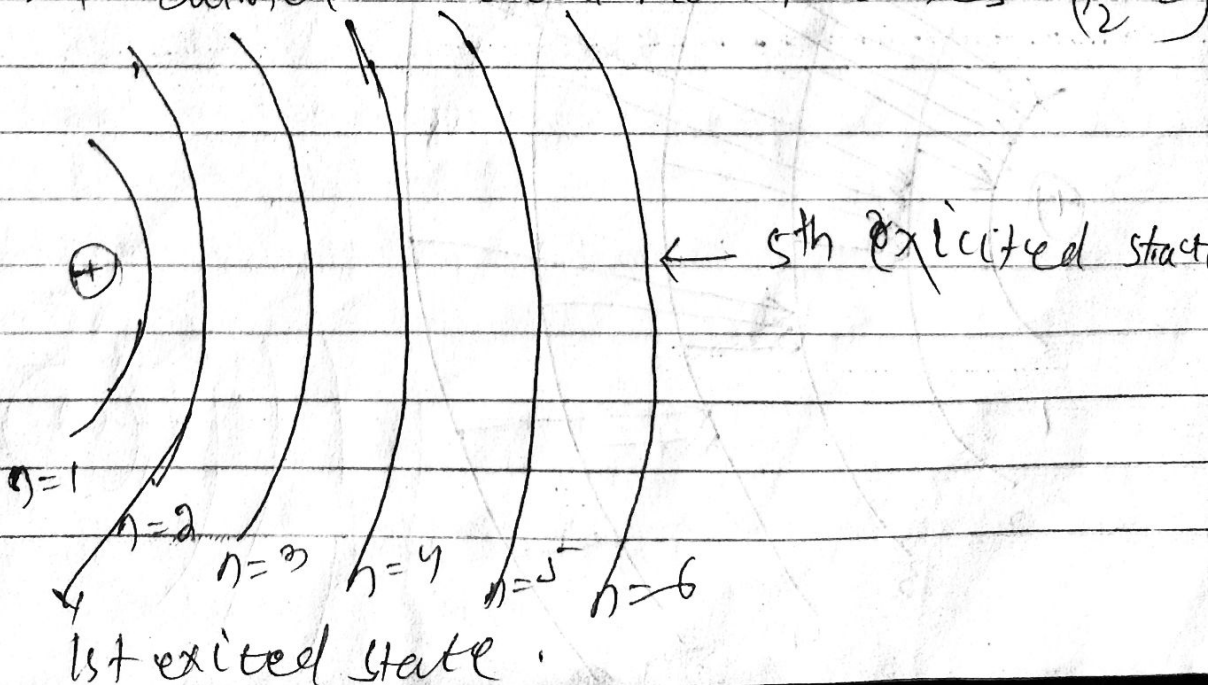 ← 5th exicited stat
n=1
n=2
n=3
n=4
n=5
n=6
1st exited state.